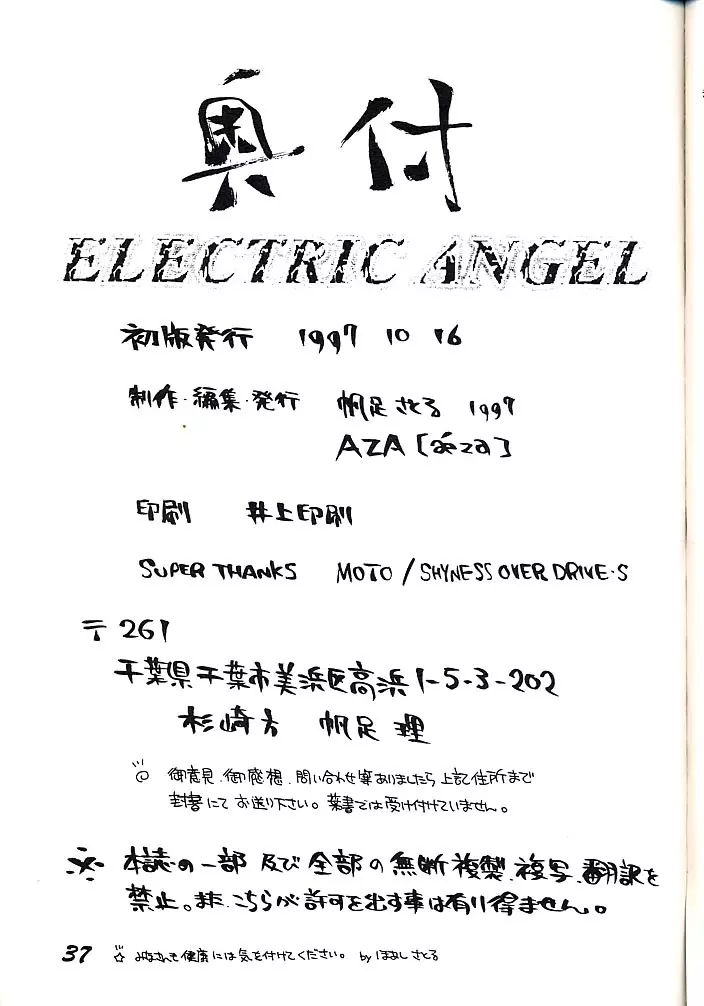 奥付
ELECTRIC ANGEL
初版発行 1997 10 16
制作・編集・発行 帆足さとる 1997
AZA [áza]
印刷 井上印刷
SUPER THANKS MOTO / SHYNESS OVER DRIVE・S
〒261
千葉県千葉市美浜区高浜1-5-3-202
杉崎方 帆足 理
御意見、御感想、問い合わせ等ありましたら上記住所まで
封書にてお送り下さい。葉書では受け付けていません。
※ 本誌の一部及び全部の無断複製、複写、翻訳を
禁止。また、こちらが許可を出す事は有り得ません。
37 ☆ みなさんも健康には気を付けてください。 by ほあしさとる